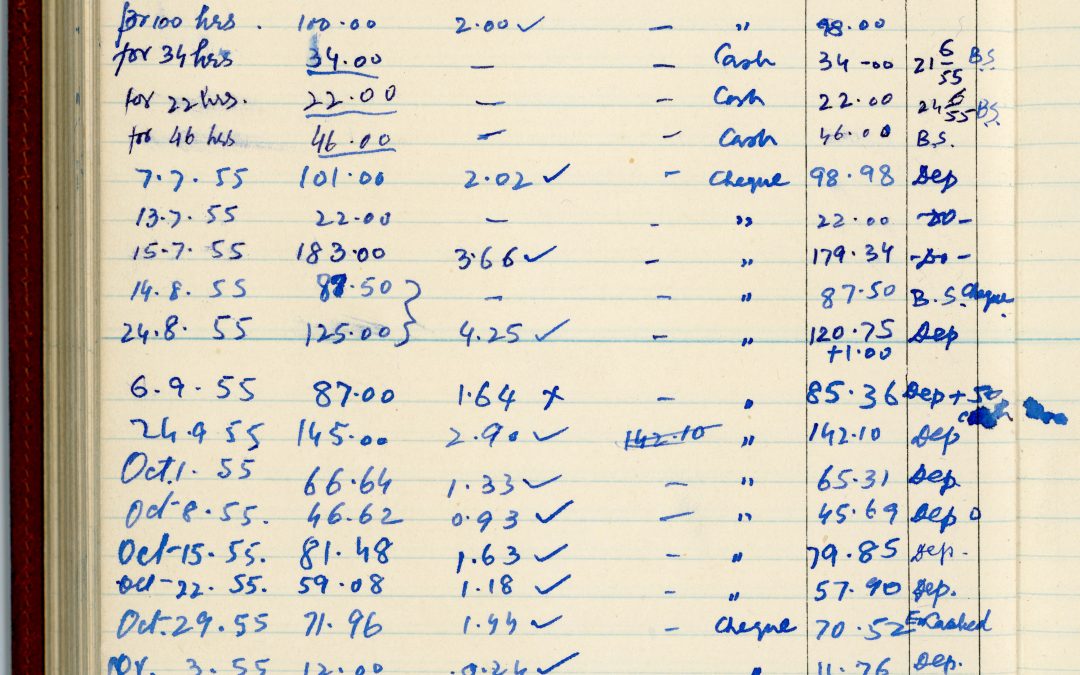 for 100 hrs. 100.00 2.00 ✓ — " 98.00
for 34 hrs 34.00 — — Cash 34-00 21 6/55 B.S.
for 22 hrs. 22.00 — — Cash 22.00 24 6/55 B.S.
for 46 hrs 46.00 — — Cash 46.00 B.S.
7.7.55 101.00 2.02 ✓ - Cheque 98.98 Dep
13.7.55 22.00 — - " 22.00 -do-
15.7.55 183.00 3.66 ✓ - " 179.34 -do-
14.8.55 87.50 } — - " 87.50 B.S. Cheque
24.8.55 125.00 } 4.25 ✓ - " 120.75 Dep
+1.00
6.9.55 87.00 1.64 x - " 85.36 Dep + 50
24.9.55 145.00 2.90 ✓ 142.10 " 142.10 Dep
Oct.1.55 66.64 1.33 ✓ - " 65.31 Dep.
Oct-8.55. 46.62 0.93 ✓ — " 45.69 Dep
Oct-15.55. 81.48 1.63 ✓ - " 79.85 Dep.
Oct-22.55. 59.08 1.18 ✓ - " 57.90 Dep.
Oct.29.55 71.96 1.44 ✓ - Cheque 70.52 Encashed
Nov. 3.55 12.00 .0.24 ✓ " 11.76 Dep.